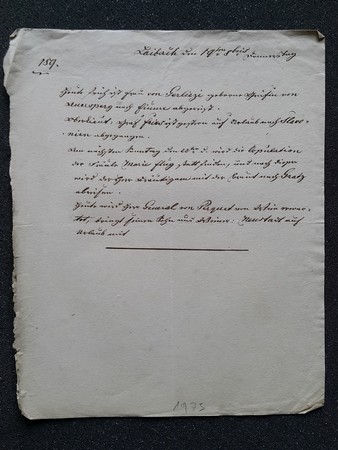 159.
Laibach den 19ten 8bris Donnerstag
Heute früh ist Frau von Terlizzi geborne Gräfin von
Auersperg nach Fiume abgereist.
Graf Fries ist gestern auf Urlaub nach Slavo-
nien abgegangen.
Am nächsten Sonntag den wird die Copulation
der Marie statt finden, und nach dieser
wird der Herr Bräutigam mit der Braut nach Gratz
abreisen.
Heute wird Herr General von Piquet von Wien erwar-
tet, bringt seinen Sohn aus Wiener Neustadt auf
Urlaub mit
1975